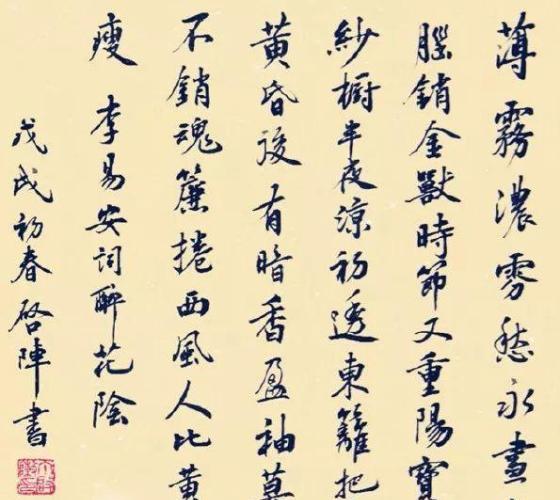 薄霧濃雰愁永晝
腦銷金獸時節又重陽寶
紗橱半夜涼初透東籬把
黃昏後有暗香盈袖莫
不銷魂簾捲西風人比黃
瘦 李易安詞醉花陰
戊戌初春啓陣書